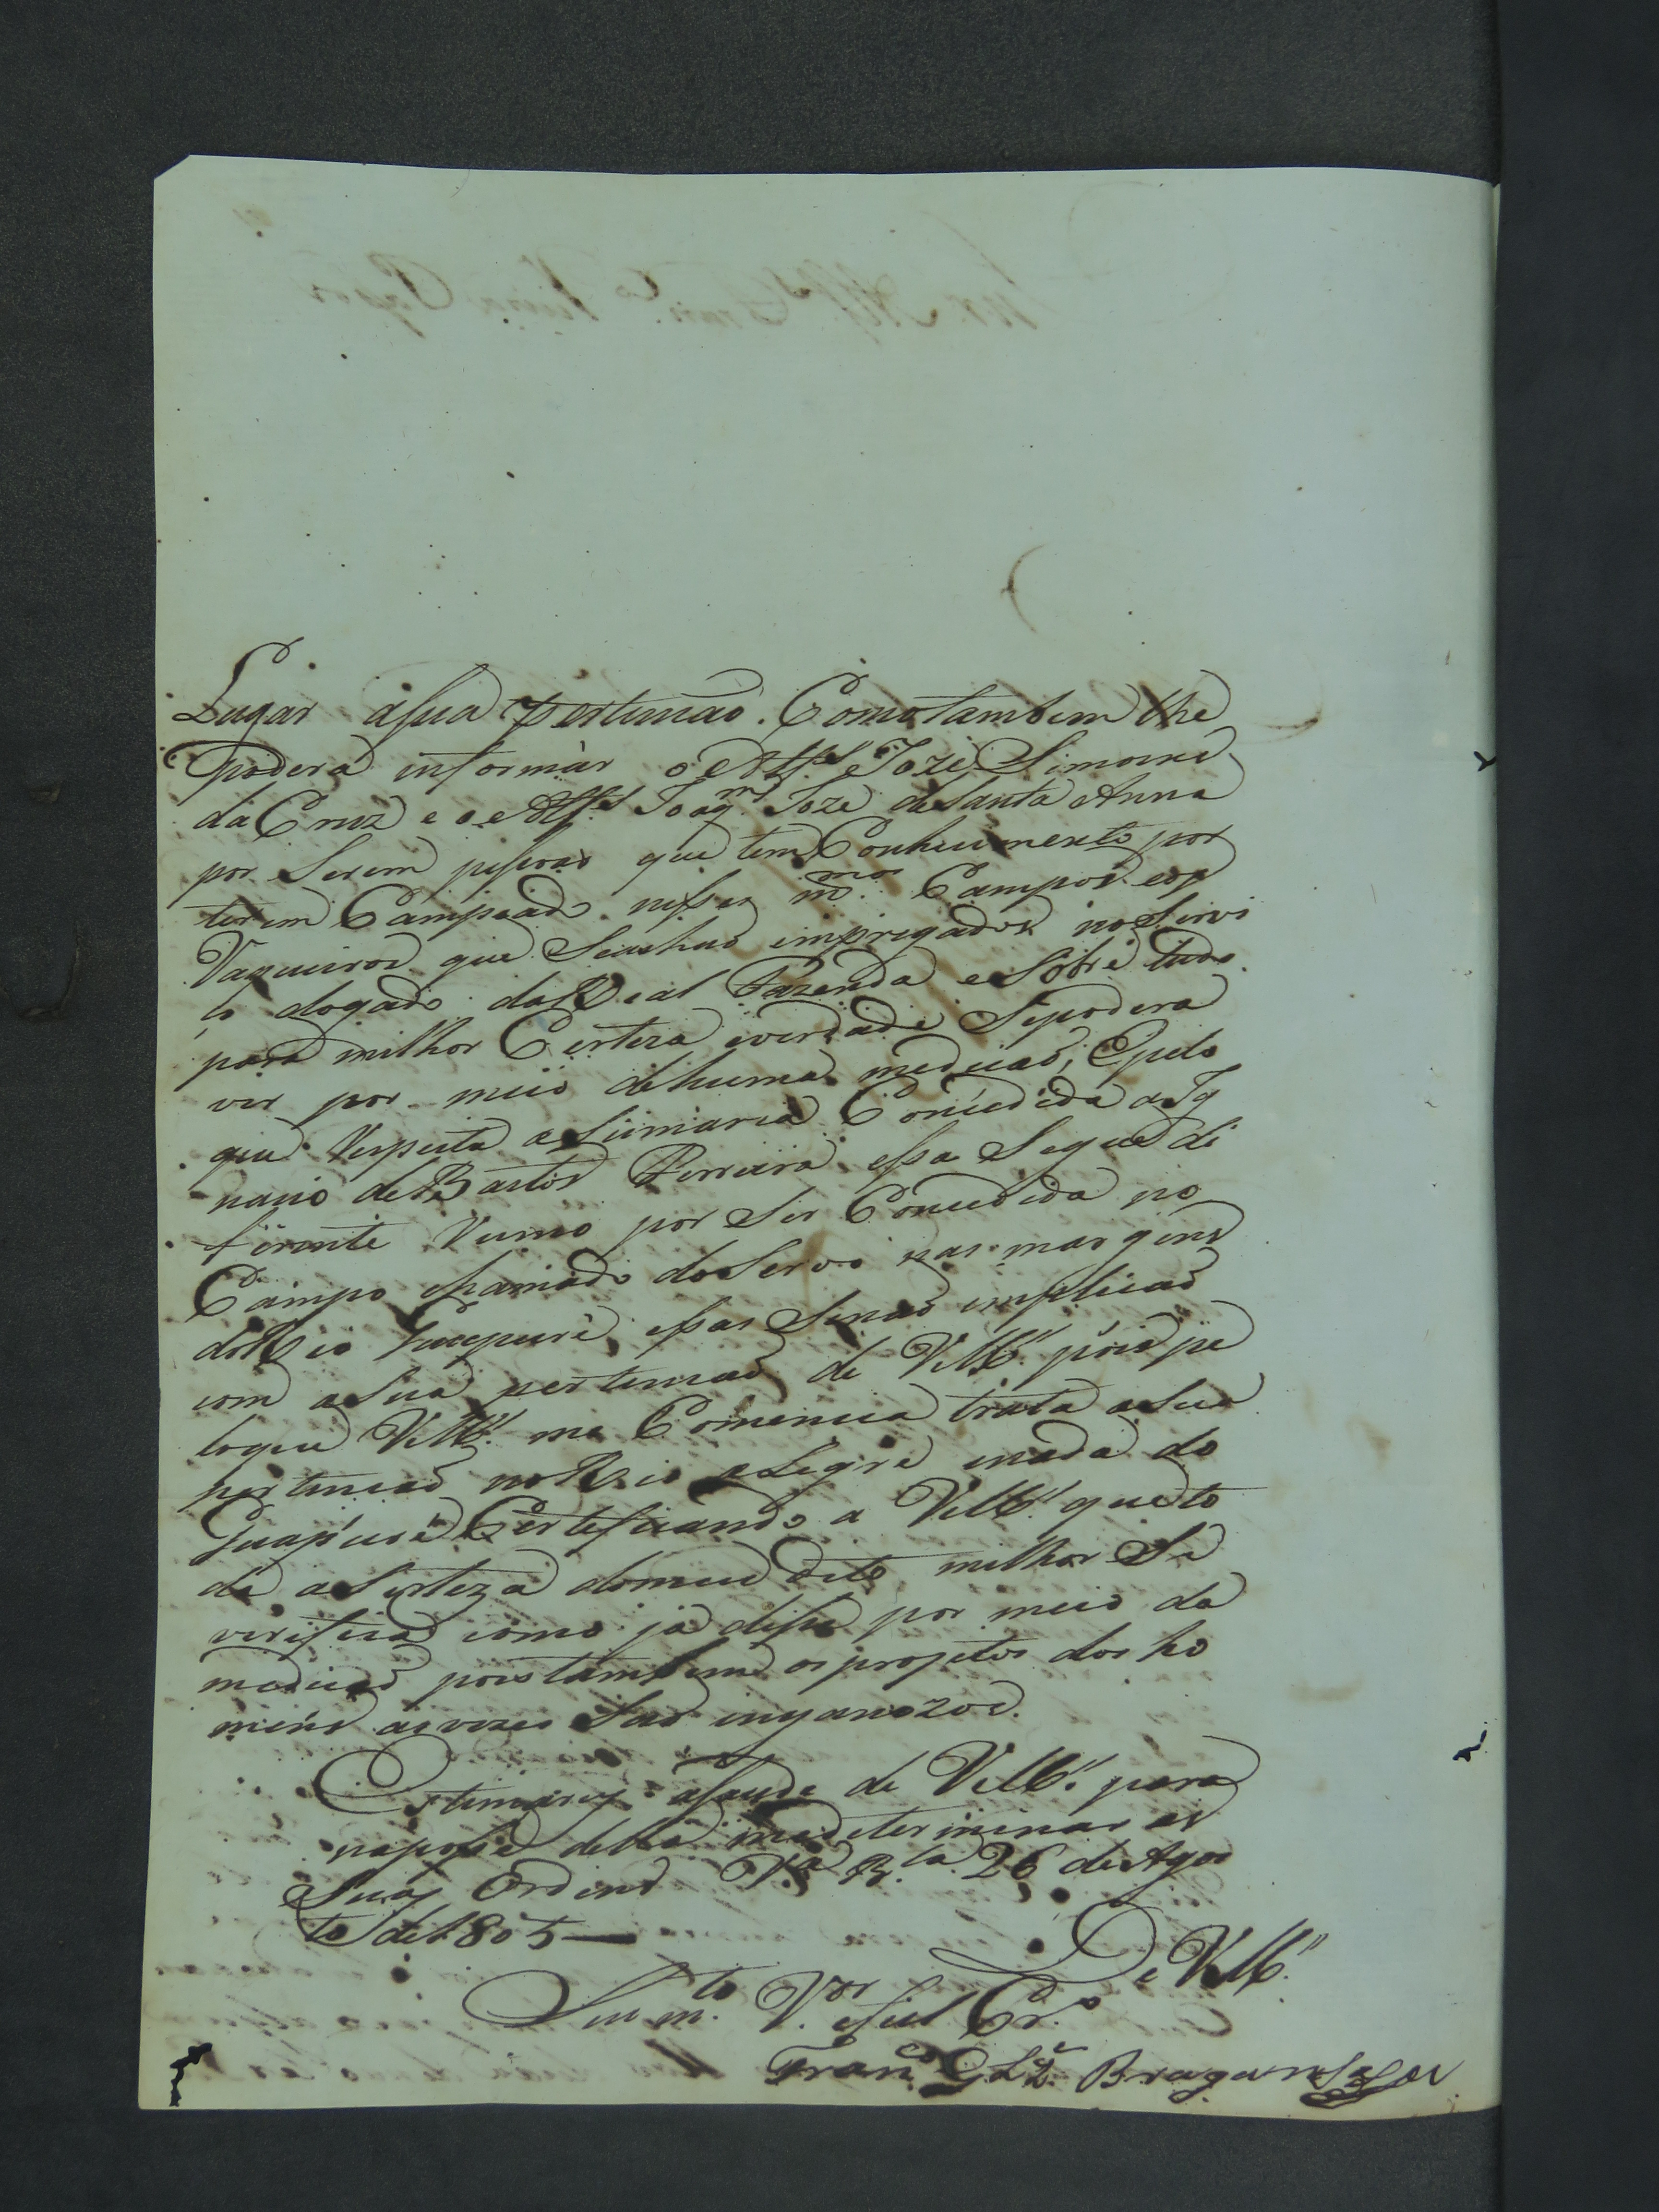 Lugar asua pertencaõ. Como tambem lhe
poderá informár o Alfes Joze Simoens
da Cruz e o Alfes Joaqm Joze de Santa Anna
por Serem pessoas que tem Conhecimento por
terem Campiado nesses mmos Campos eos
Vaqueiros que Seachaõ impregados no Servi
so dogado da Real Fazenda e Sobre tudo
para milhor Certeza everdade Sepodera
ver por meio dehuma medicaõ; Epelo
que Respeita a Siismaria Concedida a Ig
nacio de Bastos Ferreira essa Segue di
ferente Rumo por Ser Concedida no
Campo chamado do Servo nas margens
do Rio Guapurê, essas Senaõ implicaõ
com a Sua pertencaõ de VMce. pois pe
loque VMce. me Comunica trata a Sua
pertencaõ no Rio aLegre enada do
Guapurê Certeficando a VMce. que to
da a Serteza domeu dito milhor Se
verefica como já disse por meio da
medicaõ pois tambem os projetos dos ho
mens as vezes Saõ inganozos.
Estimarey asaude de VMce. para
naposse della medeterminar as
Suas Ordens Va. Ba. 26 de Agos
to de 1805 —
De VMce.
Mto. Vor. efiel Cro.
Franco Glz Bragansa